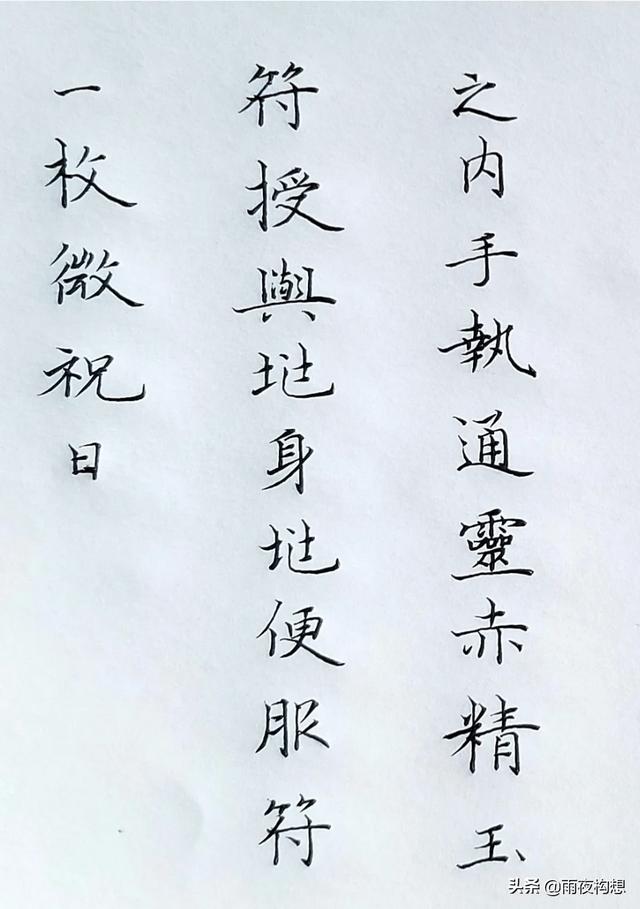 之内手執通靈赤精玉
符授與垗身垗便服符
一枚微祝曰
头条 @雨夜构想